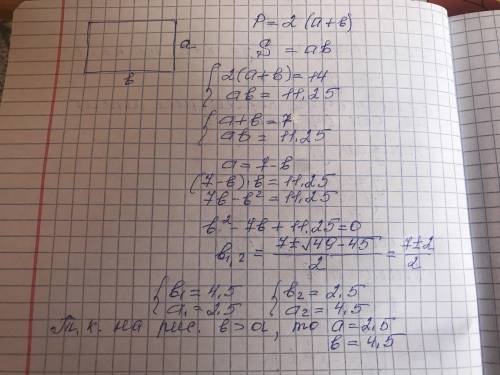 P = 2 (a+в)
a
S = aв
в
{ 2(a+в) = 14
aв = 11.25
{ a+в = 7
aв = 11.25
a = 7-в
(7-в)·в = 11.25
7в-в² = 11.25
в² - 7в + 11.25 = 0
в₁,₂ = (7±√49-45)/2 = (7±2)/2
{ в₁ = 4,5 { в₂ = 2,5
a₁ = 2,5 a₂ = 4,5
Т.к. на рис. в > a, то a = 2,5
в = 4,5